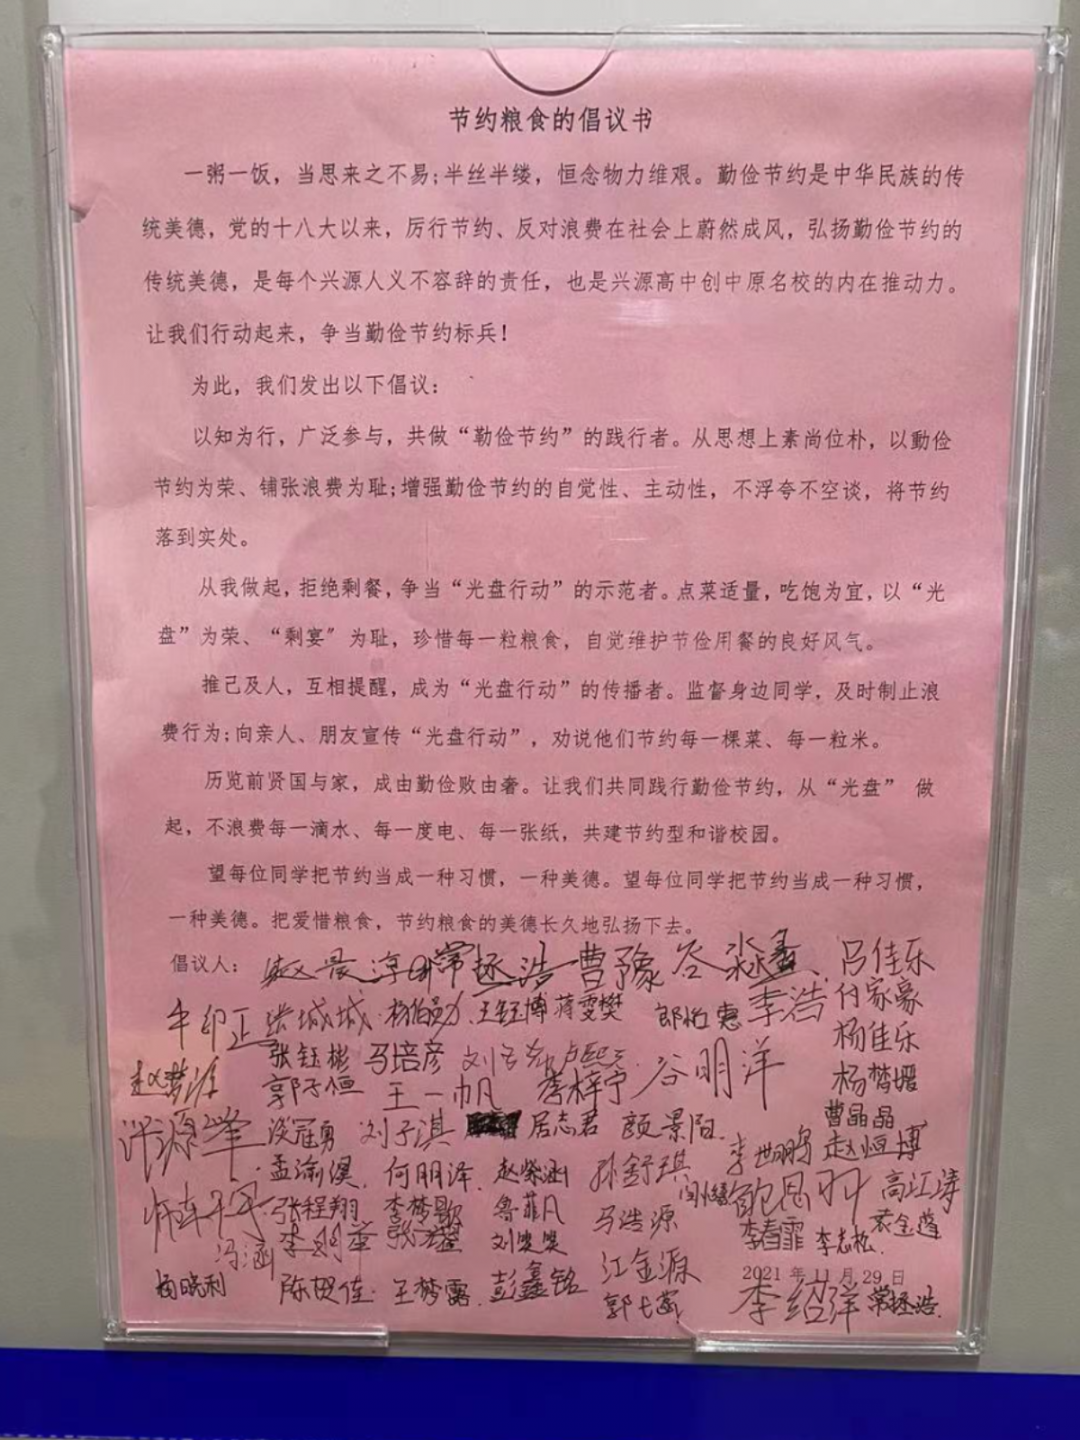 节约粮食的倡议书
一粥一饭，当思来之不易;半丝半缕，恒念物力维艰。勤俭节约是中华民族的传
统美德，党的十八大以来，厉行节约、反对浪费在社会上蔚然成风，弘扬勤俭节约的
传统美德，是每个兴源人义不容辞的责任，也是兴源高中创中原名校的内在推动力。
让我们行动起来，争当勤俭节约标兵！
为此，我们发出以下倡议：
以知为行，广泛参与，共做“勤俭节约”的践行者。从思想上素尚位朴，以動俭
节约为荣、铺张浪费为耻;增强勤俭节约的自觉性、主动性，不浮夸不空谈，将节约
落到实处。
从我做起，拒绝剩餐，争当“光盘行动”的示范者。点菜适量，吃饱为宜，以“光
盘”为荣、“剩宴”为耻，珍惜每一粒粮食，自觉维护节俭用餐的良好风气。
推己及人，互相提醒，成为“光盘行动”的传播者。监督身边同学，及时制止浪
费行为;向亲人、朋友宣传“光盘行动”，劝说他们节约每一棵菜、每一粒米。
历览前贤国与家，成由勤俭败由奢。让我们共同践行勤俭节约，从“光盘” 做
起，不浪费每一滴水、每一度电、每一张纸，共建节约型和谐校园。
望每位同学把节约当成一种习惯，一种美德。望每位同学把节约当成一种习惯，
一种美德。把爱惜粮食，节约粮食的美德长久地弘扬下去。
倡议人： 常拯浩 曹豫 谷淼鑫 吕佳乐
牛印正 王钰博 蒋雯樊 李浩 付家豪
张钰彬 马培彦 杨佳乐
郭子恒 王一帆 李梓宁 谷明洋 杨梦媛
刘子淇 居志君 颜景阳 曹晶晶
孟渝淏 何明泽 赵紫涵 孙舒琪 李世鹏 赵恒博
张程翔 李梦歌 鲁菲凡 马浩源 高江涛
冯涵 刘雯雯 李春霏 李志松
杨晓利 陈贺佳 王梦露 彭鑫铭 江金源
2021 年 11 月 29 日
李绍洋 常拯浩